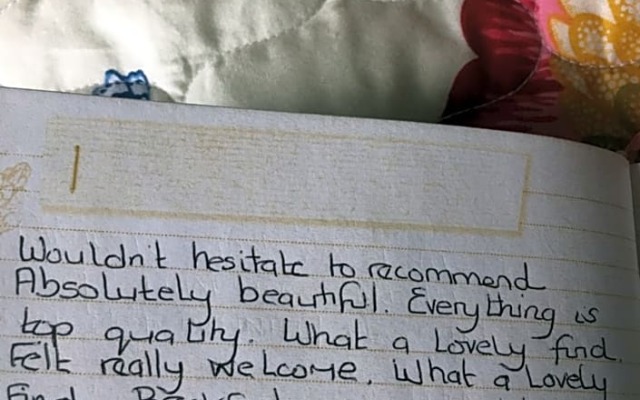 Wouldn't hesitate to recommend
Absolutely beautiful. Everything is
top quality. What a Lovely find.
Felt really welcome. What a Lovely